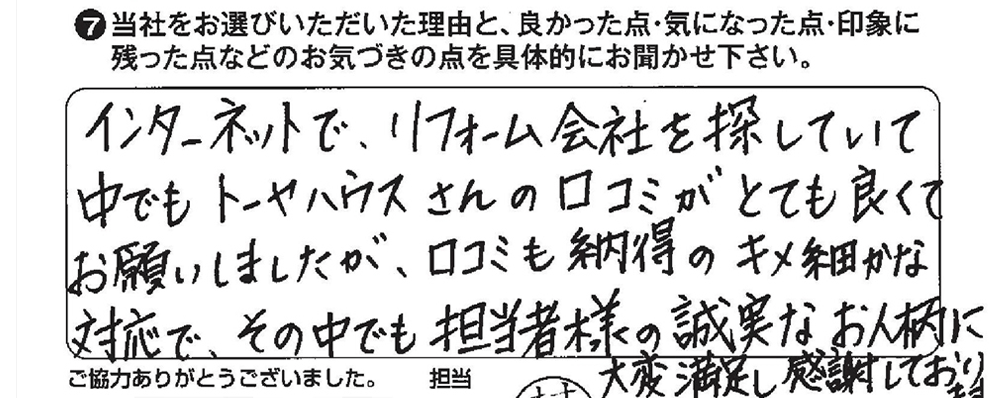 ❼当社をお選びいただいた理由と、良かった点・気になった点・印象に
残った点などのお気づきの点を具体的にお聞かせ下さい。
インターネットで、リフォーム会社を探していて
中でもトーヤハウスさんの口コミがとても良くて
お願いしましたが、口コミも納得のキメ細かな
対応で、その中でも担当者様の誠実なお人柄に
大変満足し感謝しており
ます
ご協力ありがとうございました。 担当